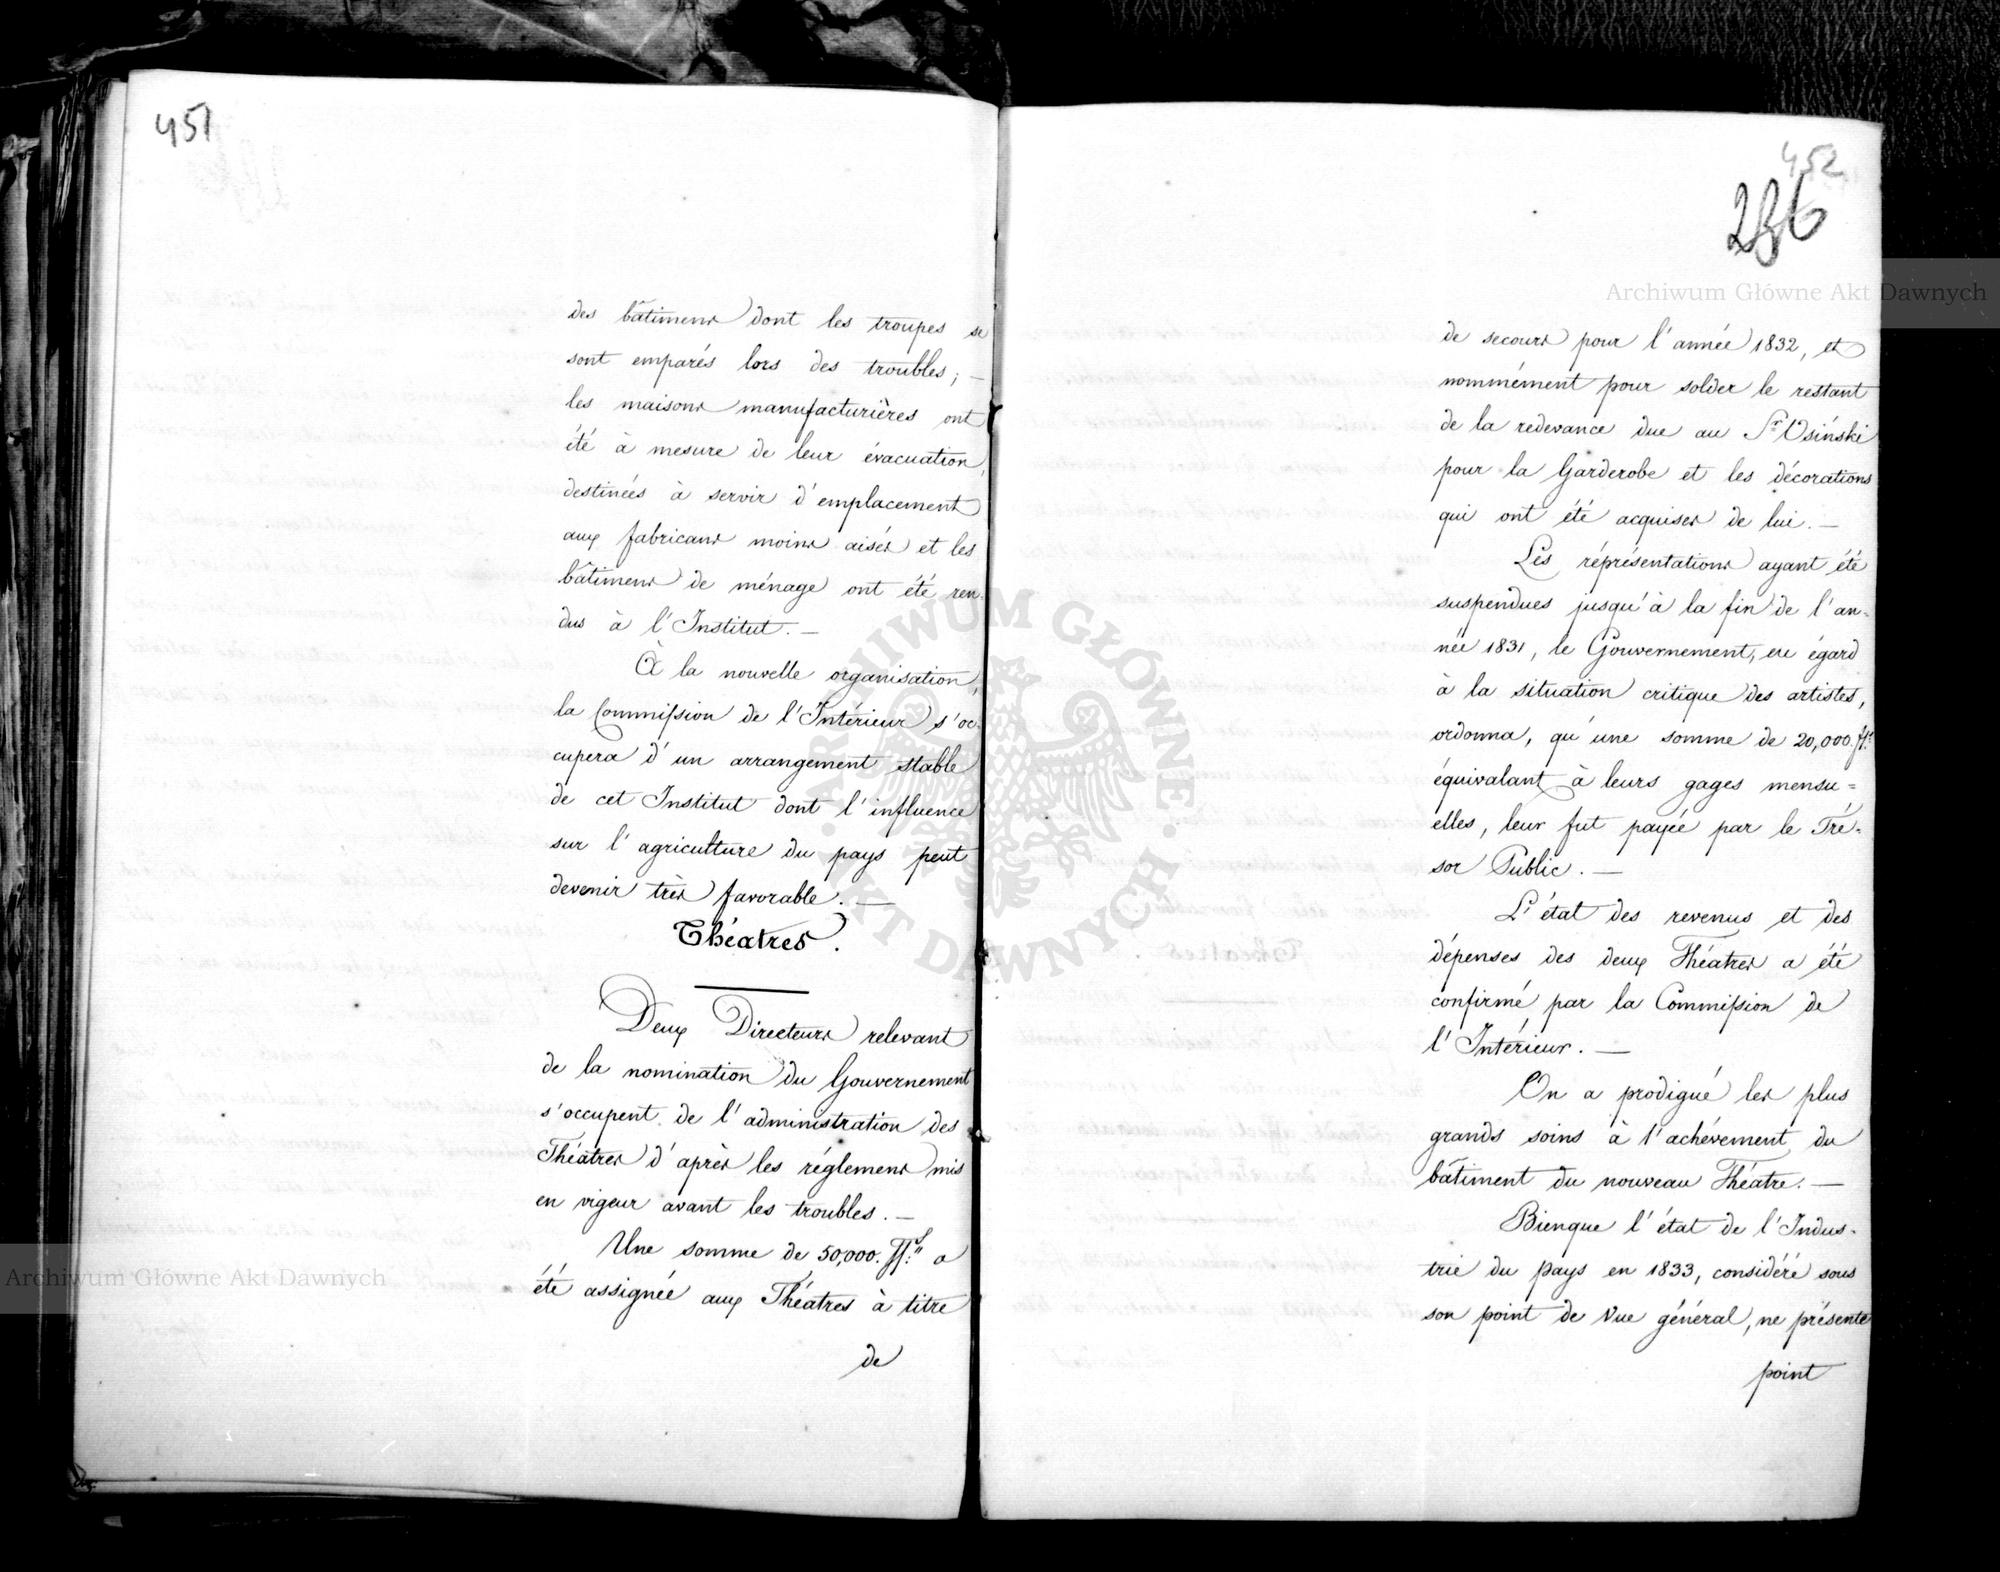 451
des bâtimens dont les troupes se
sont emparés lors des troubles; —
les maisons manufacturières ont
été à mesure de leur évacuation,
destinées à servir d'emplacement
aux fabricans moins aisés et les
bâtimens de ménage ont été ren-
dus à l'Institut. —
À la nouvelle organisation,
la Commission de l'Intérieur s'oc-
cupera d'un arrangement stable
de cet Institut dont l'influence
sur l'agriculture du pays peut
devenir très favorable. —
Théatres.
Deux Directeurs relevant
de la nomination du Gouvernement
s'occupent de l'administration des
Théatres d'après les réglemens mis
en vigeur avant les troubles. —
Une somme de 50,000. a
été assignée aux Théatres à titre
de
452
236
de secours pour l'année 1832, et
nommément pour solder le restant
de la redevance due au Sr. Osiński
pour la Garderobe et les décorations
qui ont été acquises de lui. —
Les réprésentations ayant été
suspendues jusqu'à la fin de l'an-
née 1831, le Gouvernement, eu égard
à la situation critique des artistes,
ordonna, qu'une somme de 20,000.
équivalant à leurs gages mensu=
elles, leur fut payée par le Tré-
sor Public. —
L'état des revenus et des
dépenses des deux Théatres a été
confirmé par la Commission de
l'Intérieur. —
On a prodigué les plus
grands soins à l'achévement du
bâtiment du nouveau Théatre. —
Bienque l'état de l'Indus-
trie du pays en 1833, considéré sous
son point de vue général, ne présente
point
Archiwum Główne Akt Dawnych
Archiwum Główne Akt Dawnych
ARCHIWUM GŁÓWNE · AKT DAWNYCH ·